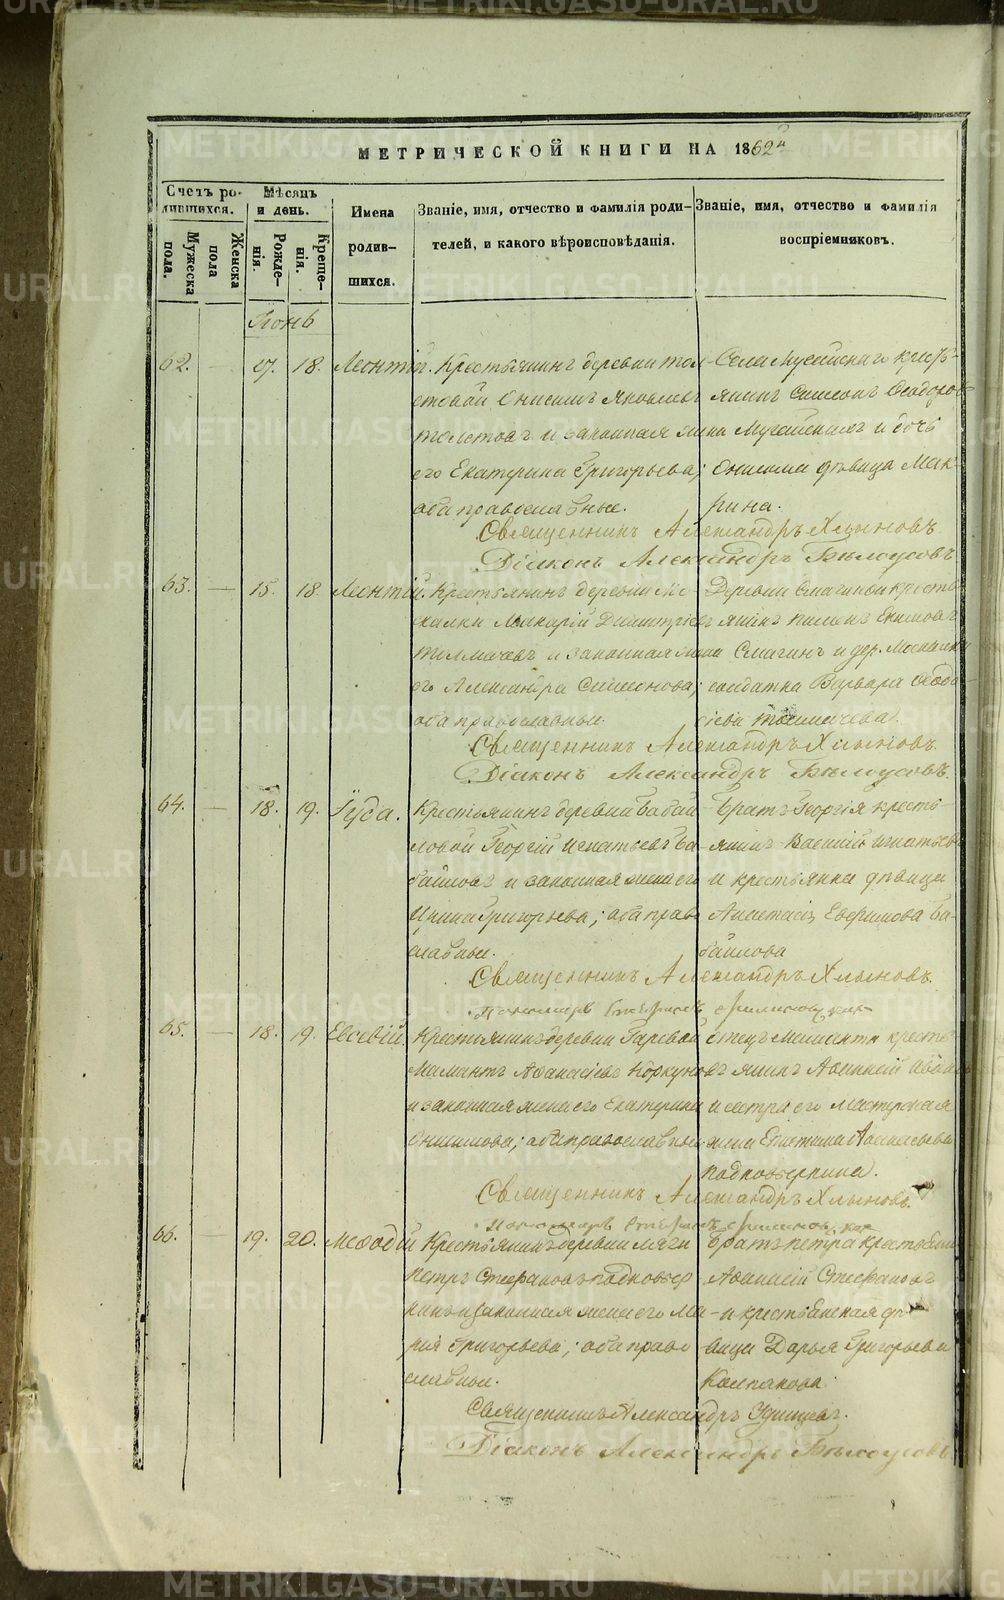 МЕТРИЧЕСКОЙ КНИГИ НА 1862й
Счетъ ро-
дившихся.
Мужеска
пола.
Женска
пола
Мѣсяцъ
и день.
Рожде-
нія.
Креще-
нія.
Имена
родив-
шихся.
Званіе, имя, отчество и фамилія роди-
телей, и какого вѣроисповѣданія.
Званіе, имя, отчество и фамилія
воспріемниковъ.
Іюнь
62. — 17. 18. Леонтій. Крестьянинъ деревни Тол-
стовой Онисимъ Яковлевъ
Толстовъ и законная жена
его Екатерина Григорьева;
оба православные.
Села кресть-
янинъ Симеонъ Ѳеодоров
и дочь
Онисима дѣвица Мак-
рина.
Священникъ Александръ Хлыновъ.
Діаконъ Александръ Бѣлоусовъ
63. — 15. 18. Леонтій. Крестьянинъ деревни Мо-
скалки Макарій Димитріевъ
Толмачевъ и законная жена
его Александра Симеонова;
оба православные.
Деревни Смагиной кресть-
янинъ Екимовъ
Смагинъ и дер. Москалки
солдатка Варвара Ѳеодо-
сіева Толмачева.
Священникъ Александръ Хлыновъ.
Діаконъ Александръ Бѣлоусовъ.
64. — 18. 19. Іуда. Крестьянинъ деревни Бабай-
ловой Георгій Игнатьевъ Ба-
байловъ и законная жена его
Ирина Григорьева; оба право-
славные.
Братъ Георгія кресть-
янинъ Василій Игнатьевъ
и крестьянка дѣвица
Анастасія Ба-
байлова
Священникъ Александръ Хлыновъ.
65. — 18. 19. Евсевій. Крестьянинъ деревни Гаревой
Мамантъ Аѳанасіевъ Коркуновъ
и законная жена его Екатерина
Онисимова; оба православные
Отецъ Маманта кресть-
янинъ Аѳанасій
и сестра его мастерская
жена Аѳанасьева
Подковыркина.
Священникъ Александръ Хлыновъ.
66. — 19. 20. Меѳодій Крестьянинъ деревни Ляги
Петръ Стефановъ Подковыр-
кинъ и законная жена его Ма-
рія Григорьева; оба право-
славные.
Братъ Петра крестьянинъ
Аѳанасій Стефановъ
и крестьянская дѣ-
вица Дарья Григорьева
Колпакова.
Священникъ Александръ Удинцевъ.
Діаконъ Александръ Бѣлоусовъ
METRIKI.GASO-URAL.RU